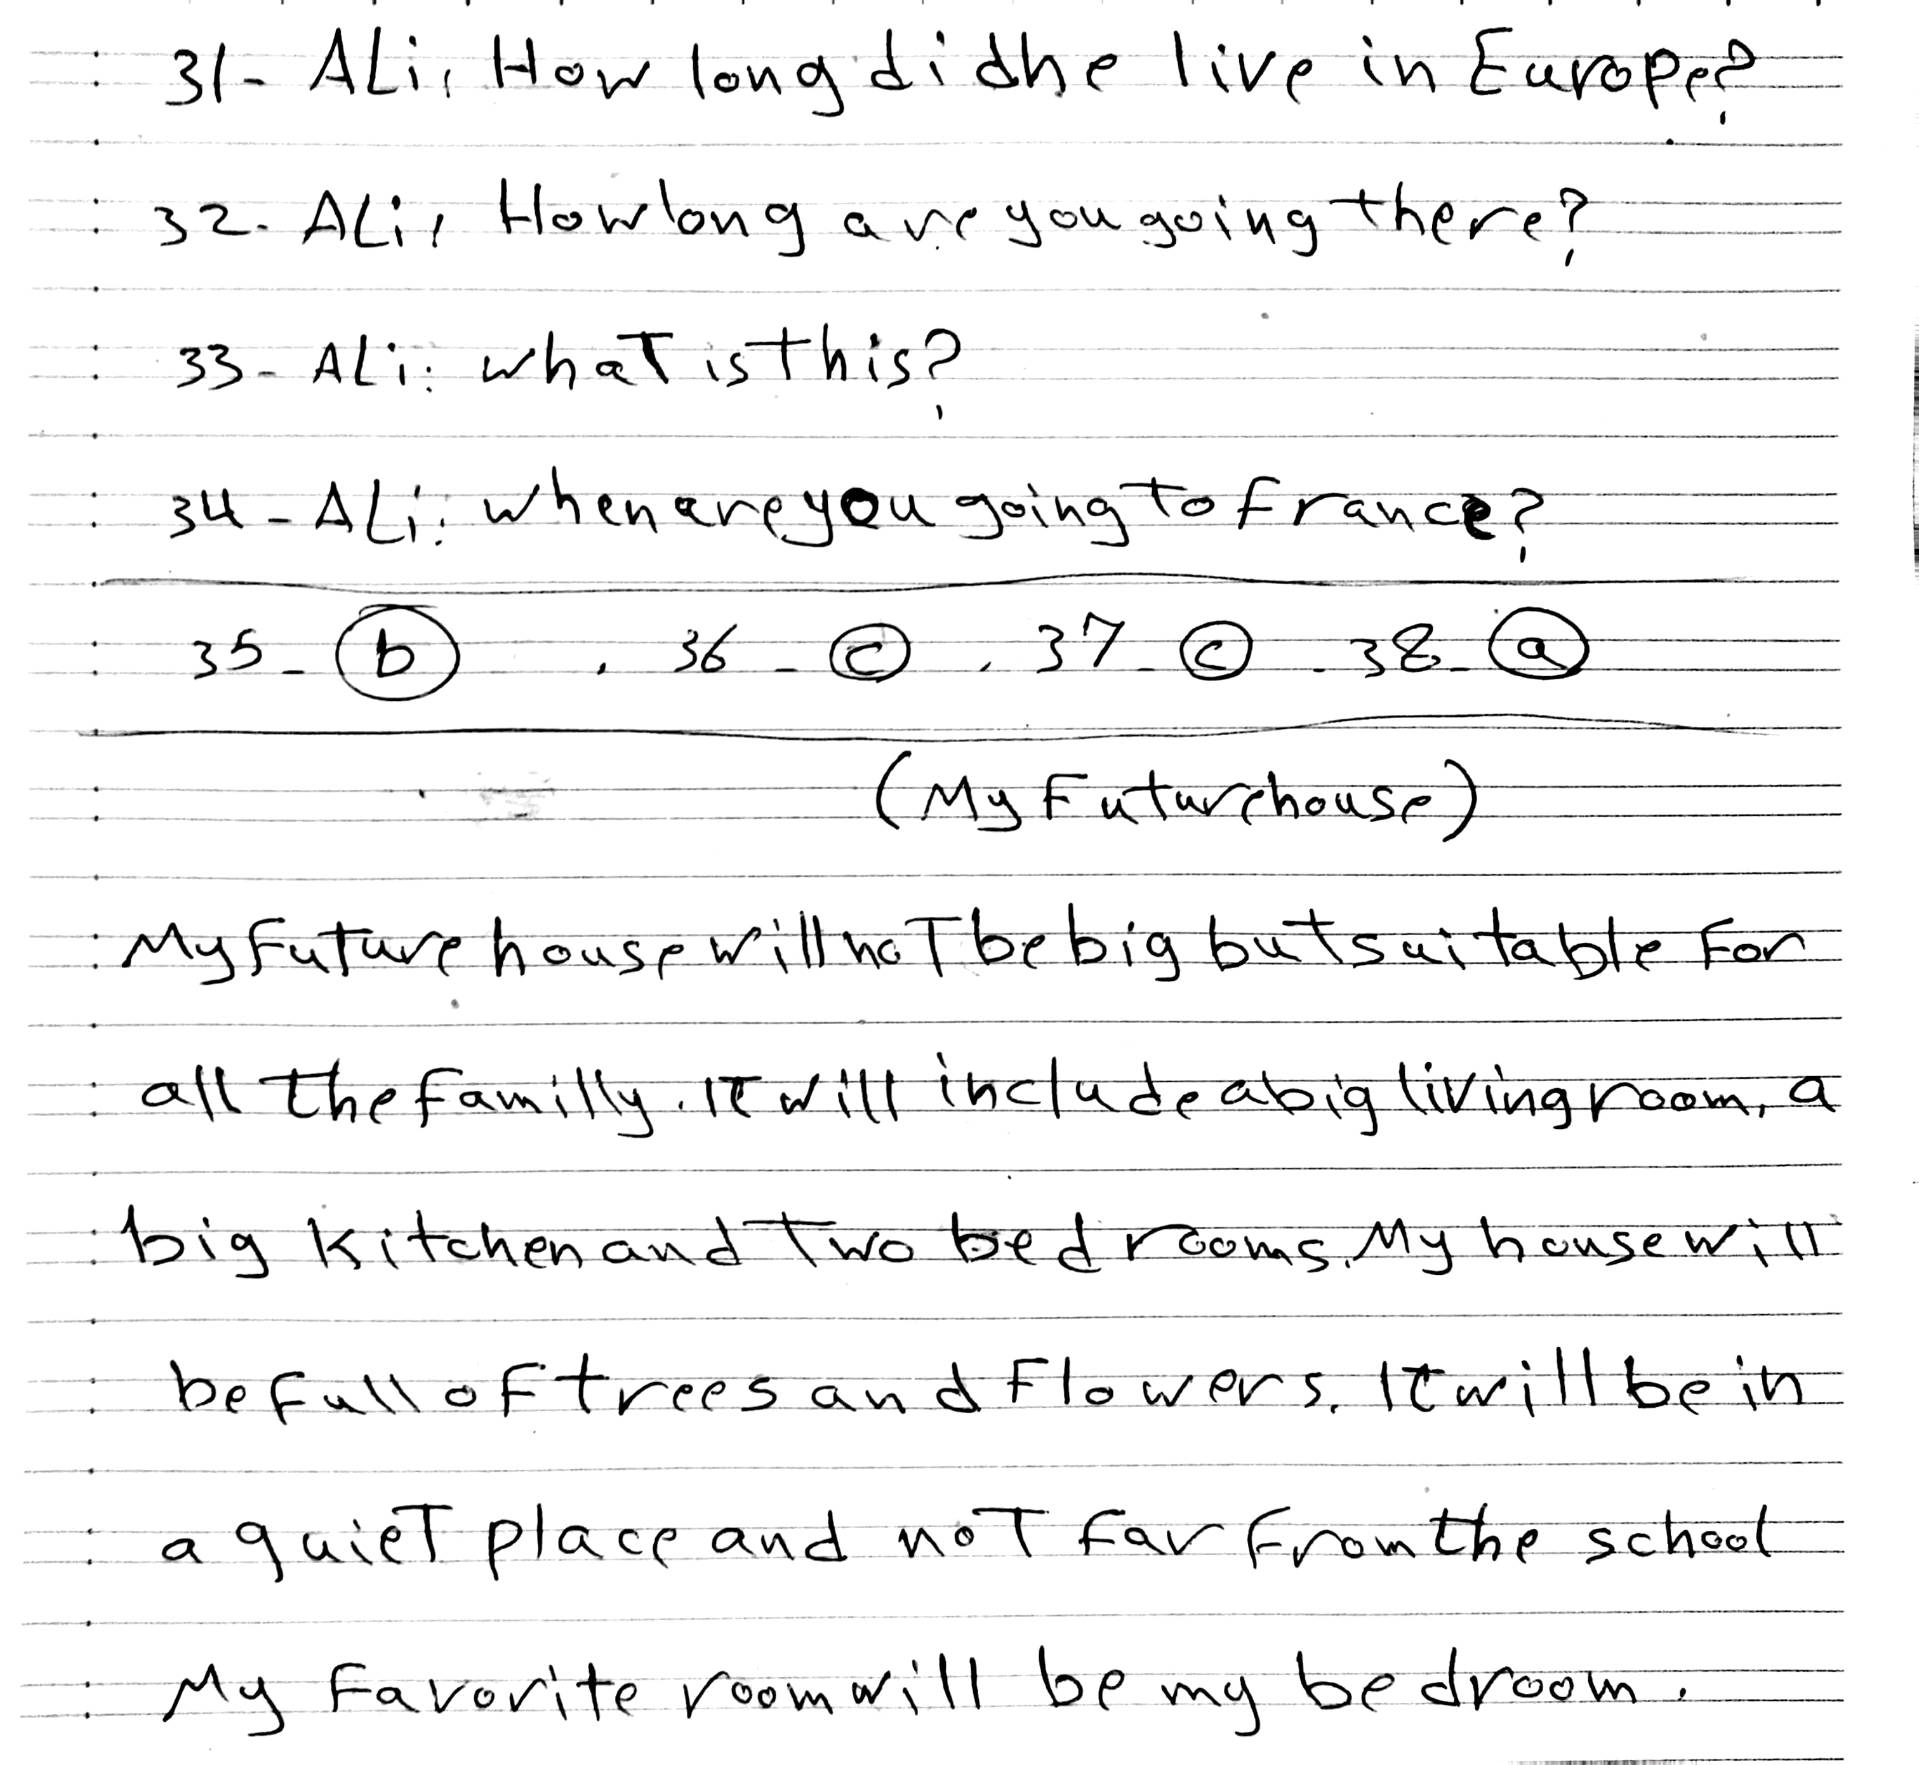 31- ALi, How long did he live in Europe?
32- ALi, How long are you going there?
33- ALi: what is this?
34- ALi: when are you going to france?
35- b , 36 - c , 37- c . 38- a
(My Future house)
My Future house will not be big but suitable For
all the familly. It will include a big living room, a
big kitchen and two bedrooms. My house will
be full of trees and Flowers. It will be in
a quiet place and not far from the school
My Favorite room will be my bedroom.